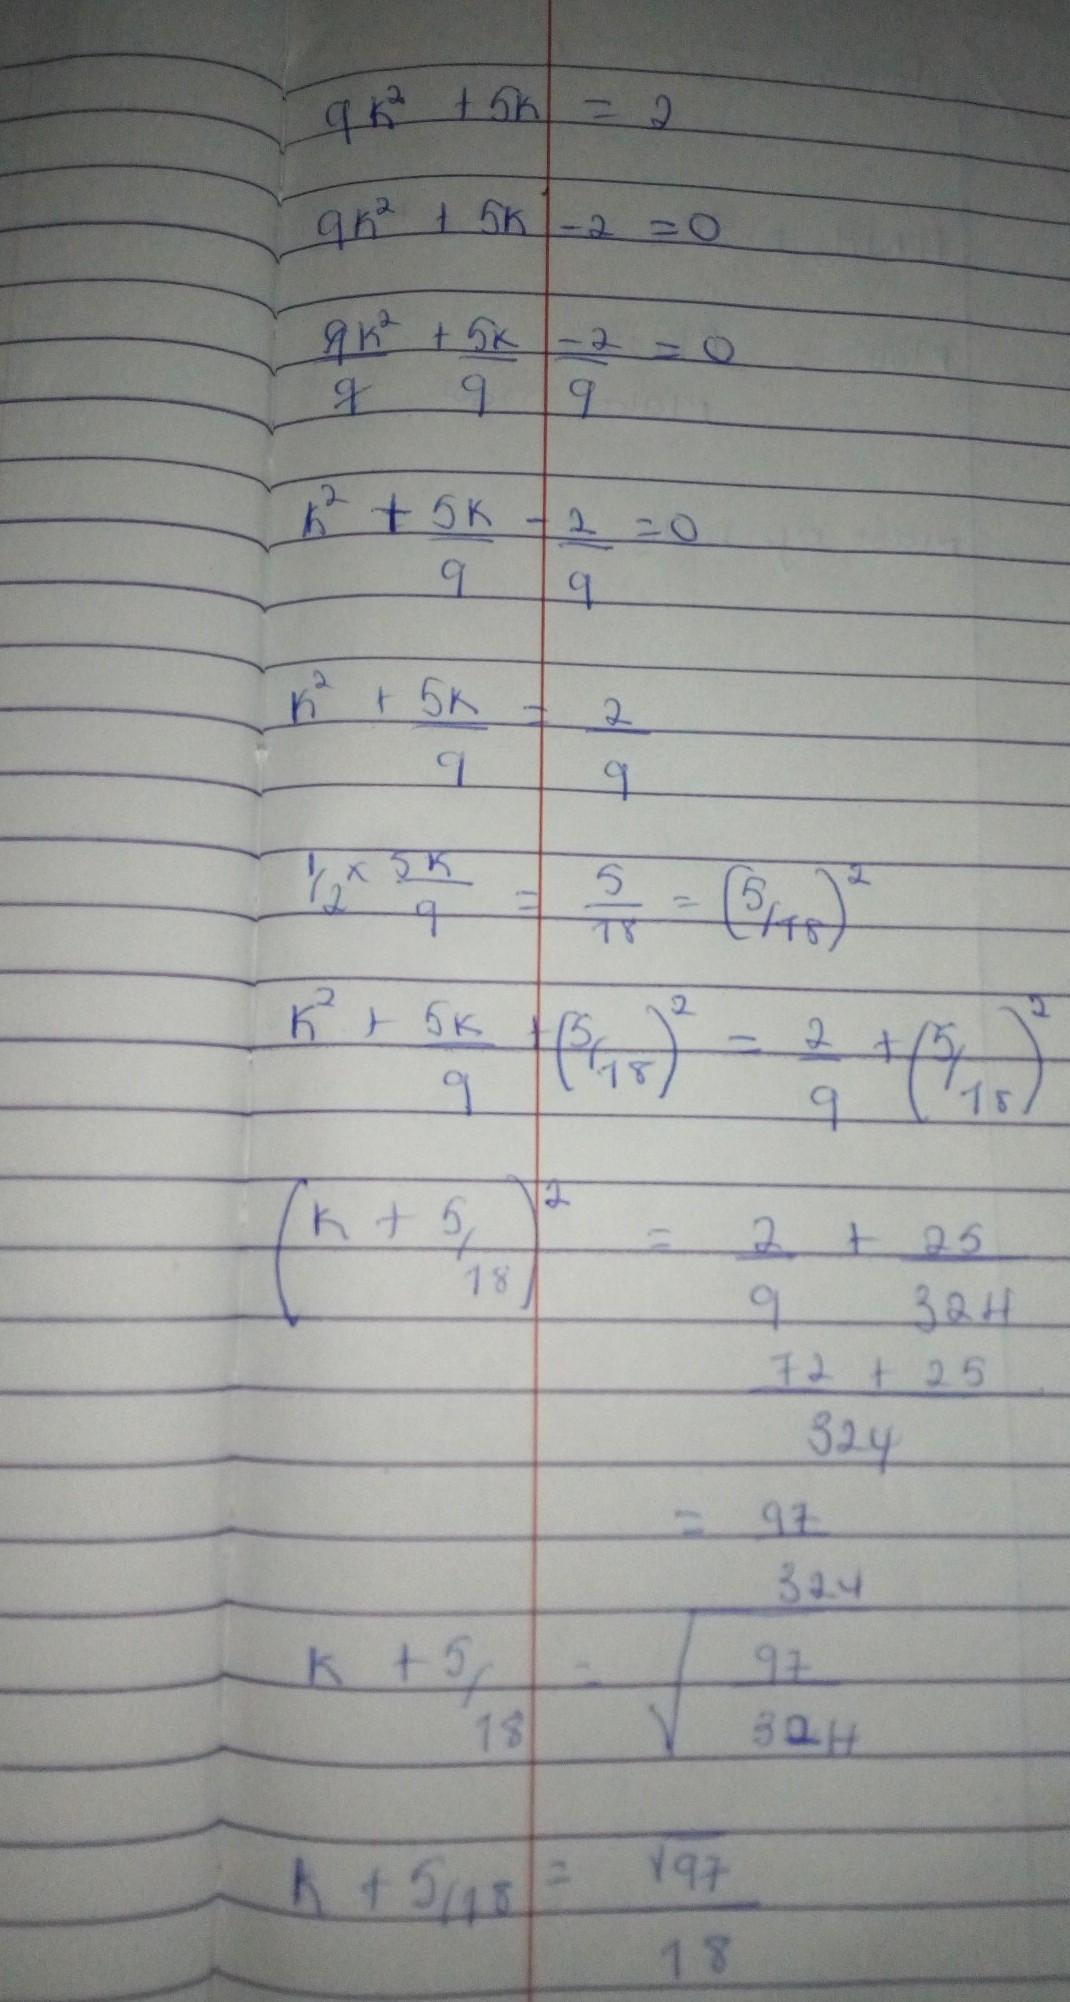 9k² + 5k = 2
9k² + 5k - 2 = 0
9k²/9 + 5k/9 - 2/9 = 0
k² + 5k/9 - 2/9 = 0
k² + 5k/9 = 2/9
1/2 × 5k/9 = 5/18 = (5/18)²
k² + 5k/9 + (5/18)² = 2/9 + (5/18)²
(k + 5/18)² = 2/9 + 25/324
72 + 25/324
= 97/324
k + 5/18 = √97/324
k + 5/18 = √97/18